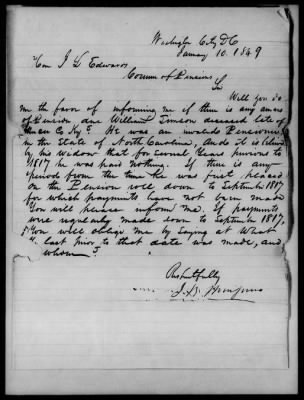 Washington City DC
January 10. 1849
Hon J L Edwards
Comm of Pensions
Sir
Will you do
me the favor of informing me if there is any arrears
of Pension due William Timson deceased late of
Co Ky. He was an invalid Pensioner
in the State of North Carolina, and it is believed
by his widow that for several years previous to
1817 he was paid nothing. If there is any
period from the time he was first placed
on the Pension roll down to September 1817
for which payments have not been made
you will please inform me. If payments
were regularly made down to September 1817,
you will oblige me by saying at what
last prior to that date was made, and
whom?
Respectfully